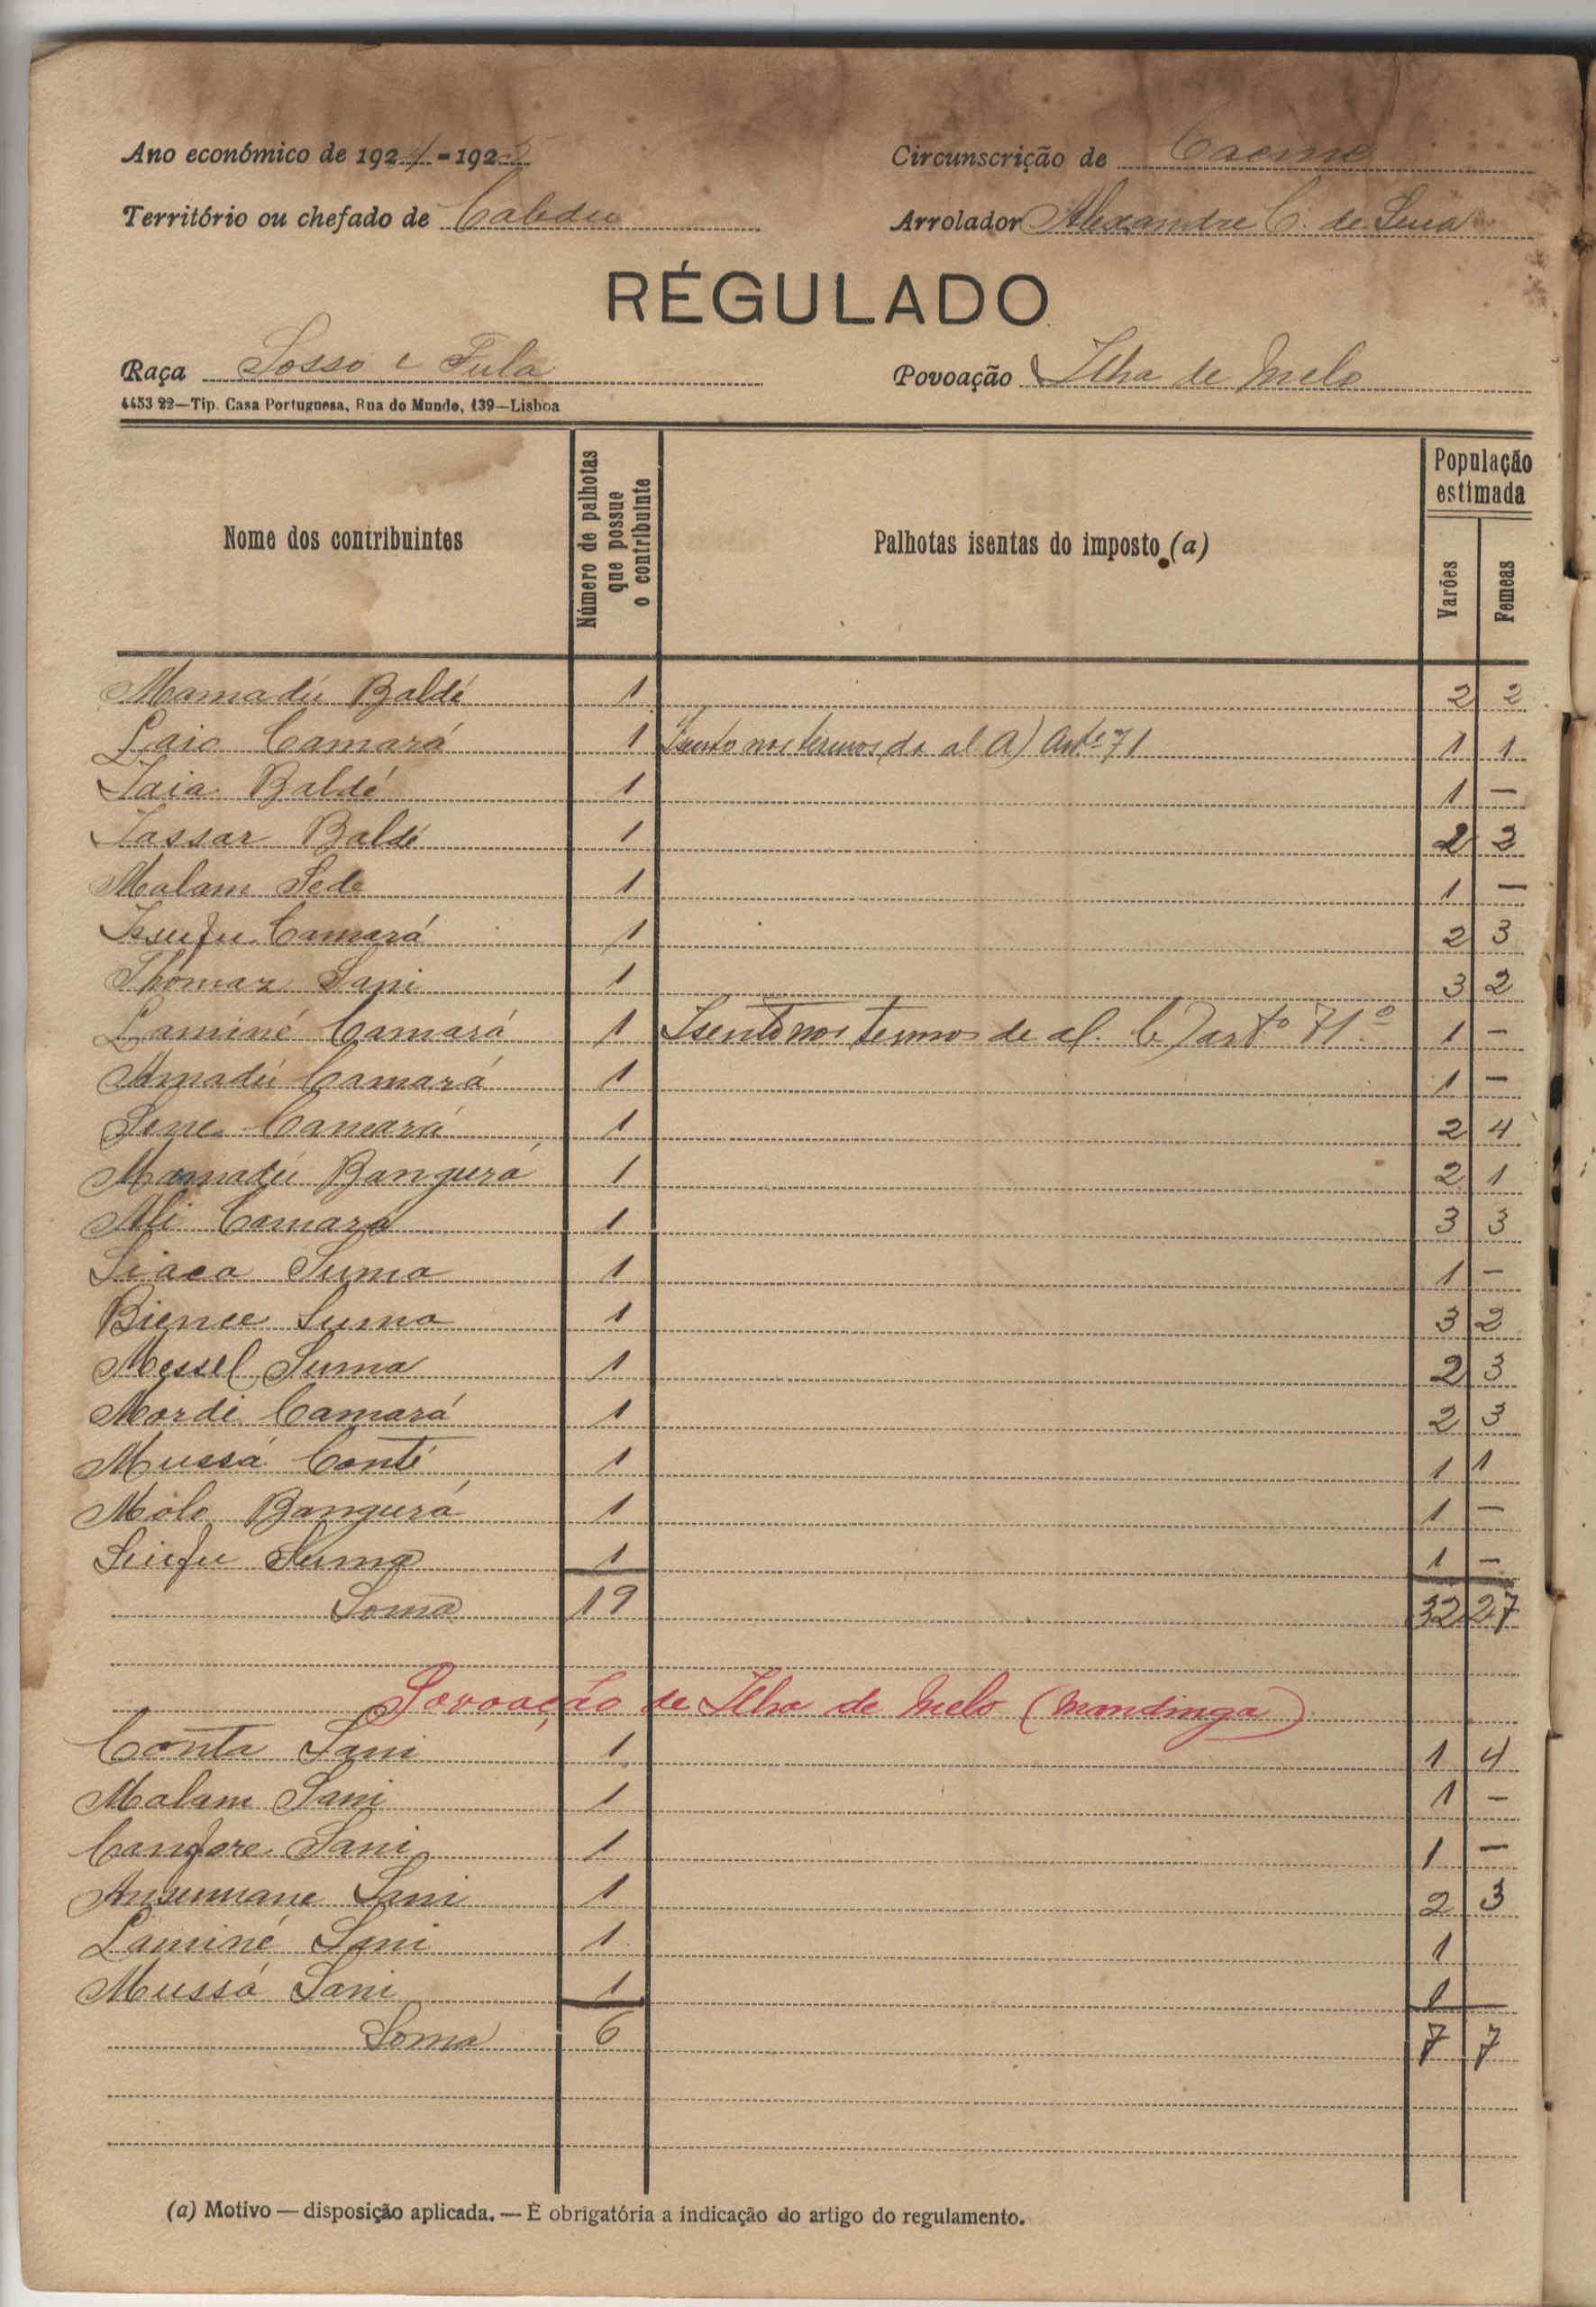 Ano económico de 1924-192
Circunscrição de Cacine
Território ou chefado de Cabedu
Arrolador Alexandre C. de
RÉGULADO
Raça Sosso e Fula
Povoação Ilha de Melo
4453 22—Tip. Casa Portuguesa, Rua do Mundo, 139—Lisboa
Nome dos contribuintes
Número de palhotas que possue o contribuinte
Palhotas isentas do imposto (a)
População estimada
Varões
Femeas
Mamadú Baldé 1 2 2
Laio Camará 1 Isento nos termos da al a) Artº 71 1 1
Saia Baldé 1 1 —
Sassar Baldé 1 2 3
Malam Sede 1 1 —
Issufu Camará 1 2 3
Thomaz Sani 1 3 2
Laminé Camará 1 Isento nos termos de al. b) artº 71º 1 —
Amadú Camará 1 1 —
Sene Camará 1 2 4
Mamadú Bangurá 1 2 1
Ali Camará 1 3 3
Siaca Suma 1 1 —
Suma 1 3 2
Messel Suma 1 2 3
Mordi Camará 1 2 3
Mussá Conté 1 1 1
Molo Bangurá 1 1 —
Suma 1 1 —
Soma 19 32 27
Povoação de Ilha de Melo (Mandinga)
Conta Sani 1 1 4
Malam Sani 1 1 —
Canfore Sani 1 1 —
Ansumane Sani 1 2 3
Laminé Sani 1 1
Mussá Sani 1 1
Soma 6 7 7
(a) Motivo — disposição aplicada. — É obrigatória a indicação do artigo do regulamento.